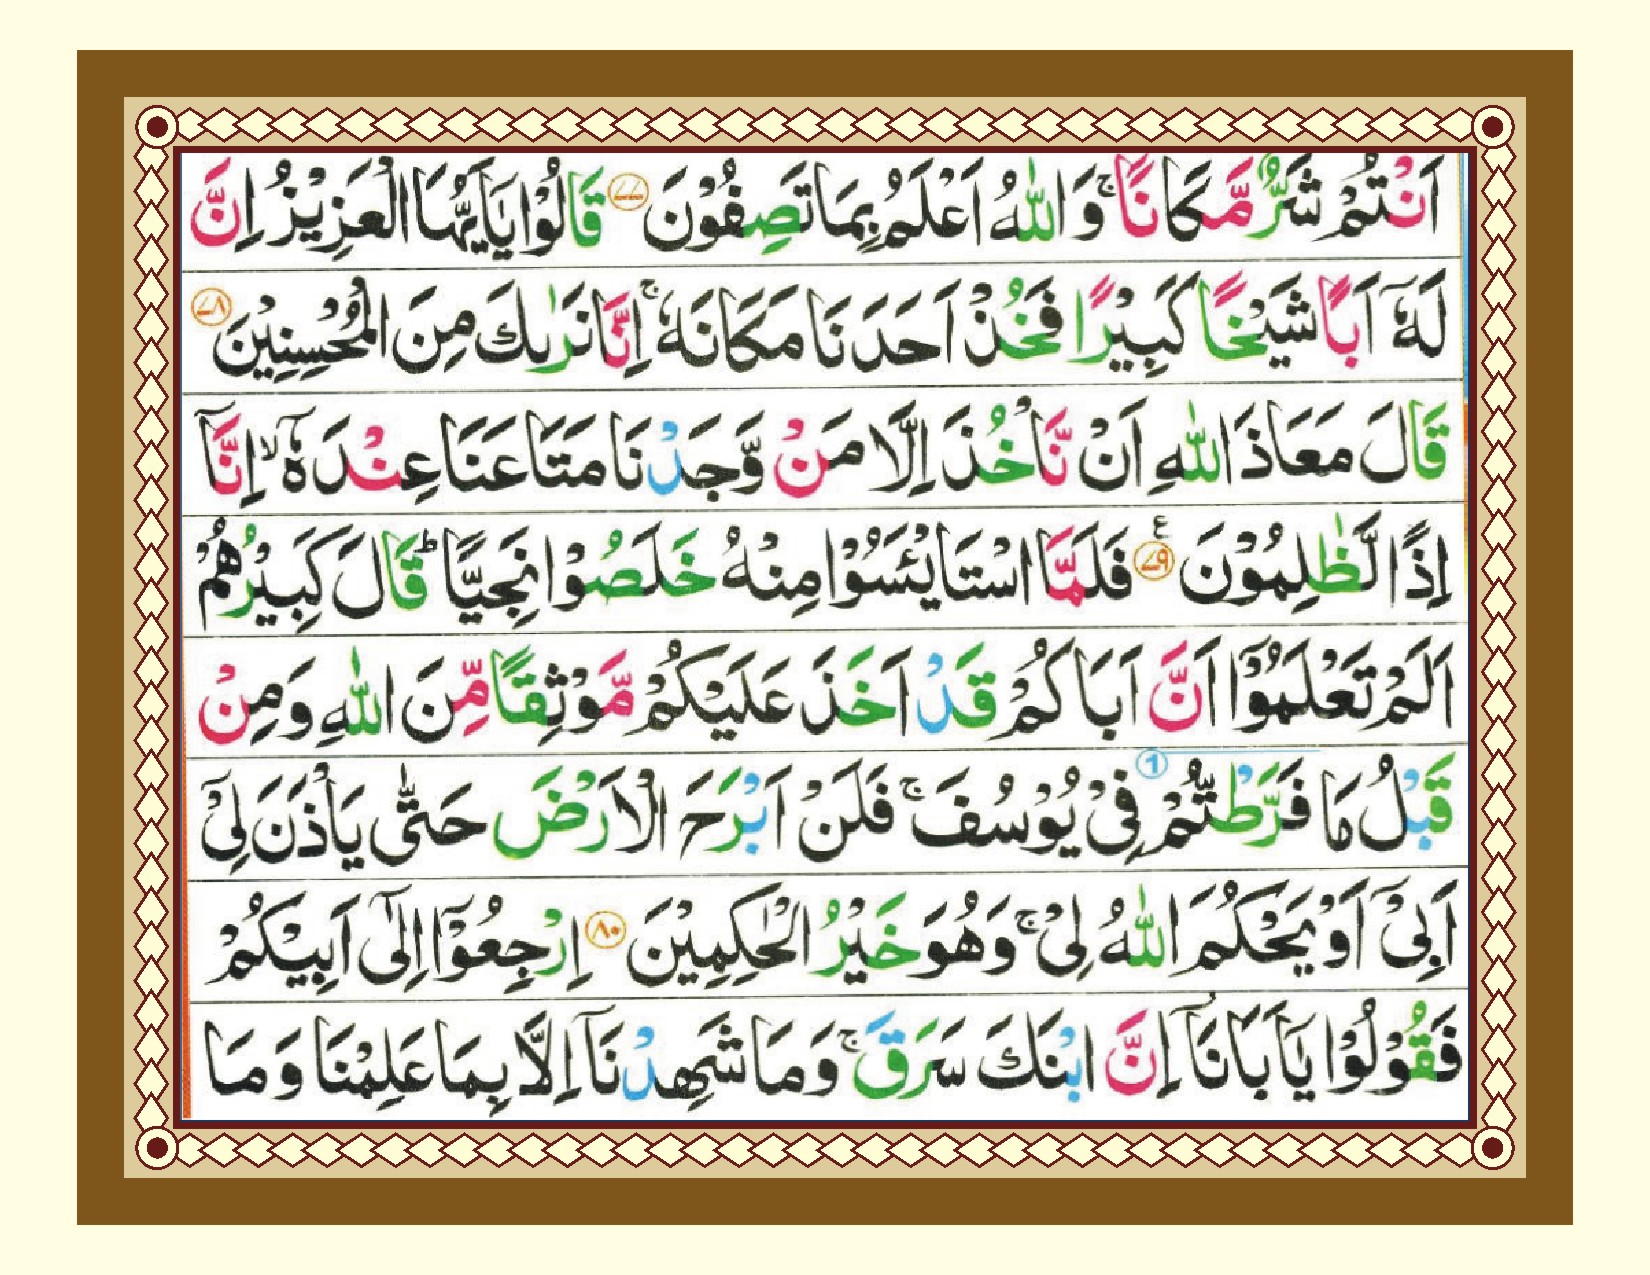 اَنْتُمْ شَرٌّ مَّكَانًا ۚ وَاللّٰهُ اَعْلَمُ بِمَا تَصِفُوْنَ ﴿۷۷﴾ قَالُوْا يٰۤاَيُّهَا الْعَزِيْزُ اِنَّ
لَهٗۤ اَبًا شَيْخًا كَبِيْرًا فَخُذْ اَحَدَنَا مَكَانَهٗ ۚ اِنَّا نَرٰىكَ مِنَ الْمُحْسِنِيْنَ ﴿۷۸﴾
قَالَ مَعَاذَ اللّٰهِ اَنْ نَّاْخُذَ اِلَّا مَنْ وَّجَدْنَا مَتَاعَنَا عِنْدَهٗۤ ۙ اِنَّاۤ
اِذًا لَّظٰلِمُوْنَ ﴿۷۹﴾ ع فَلَمَّا اسْتَايْـَٔسُوْا مِنْهُ خَلَصُوْا نَجِيًّا ؕ قَالَ كَبِيْرُهُمْ
اَلَمْ تَعْلَمُوْۤا اَنَّ اَبَاكُمْ قَدْ اَخَذَ عَلَيْكُمْ مَّوْثِقًا مِّنَ اللّٰهِ وَمِنْ
قَبْلُ مَا فَرَّطْتُّمْ ① فِيْ يُوْسُفَ ۚ فَلَنْ اَبْرَحَ الْاَرْضَ حَتّٰى يَاْذَنَ لِيْۤ
اَبِيْۤ اَوْ يَحْكُمَ اللّٰهُ لِيْ ۚ وَهُوَ خَيْرُ الْحٰكِمِيْنَ ﴿۸۰﴾ اِرْجِعُوْۤا اِلٰۤى اَبِيْكُمْ
فَقُوْلُوْا يٰۤاَبَانَاۤ اِنَّ ابْنَكَ سَرَقَ ۚ وَمَا شَهِدْنَاۤ اِلَّا بِمَا عَلِمْنَا وَمَا